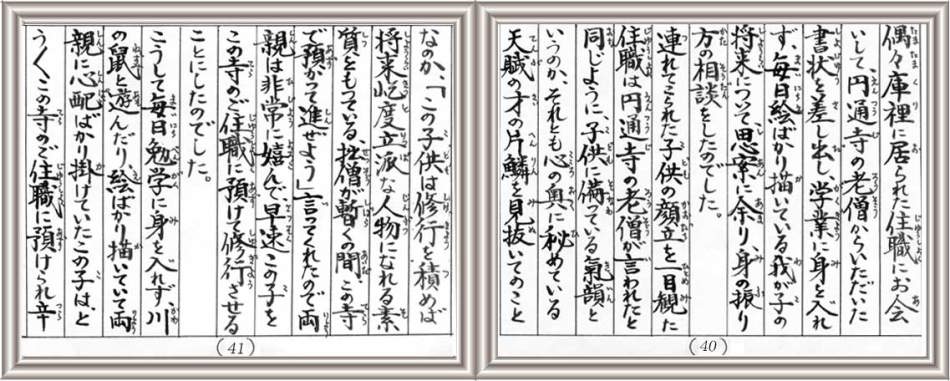 偶々庫裡に居られた住職にお会
いして、円通寺の老僧からいただいた
書状を差し出し、学業に身を入れ
ず、毎日絵ばかり描いている我が子の
将来について思案に余り、身の振り
方の相談をしたのでした。
連れてこられた子供の顔立を一目観た
住職は円通寺の老僧が言われたと
同じように、子供に備っている氣韻と
いうのか、それとも心の奥に秘めている
天賦の才の片鱗を見抜いてのこと
(40)
なのか、「この子供は修行を積めば
将来屹度立派な人物になれる素
質をもっている、拙僧が暫くの間、この寺
で預かって進ぜよう」言ってくれたので両
親は非常に嬉んで早速この子を
この寺のご住職に預けて修行させる
ことにしたのでした。
こうして毎日勉学に身を入れず、川
の鼠と遊んだり、絵ばかり描いていて両
親に心配ばかり掛けていたこの子は、と
うくこの寺のご住職に預けられ辛
(41)